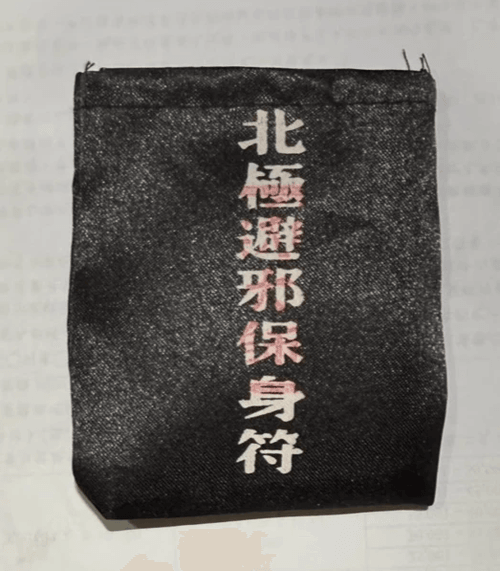 北極避邪保身符